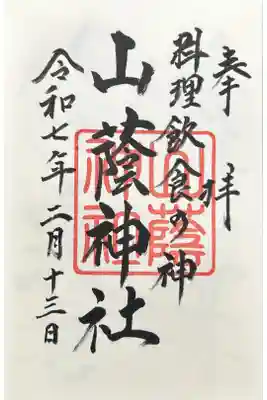 奉拝
料理飲食の神
山蔭神社
山蔭神社
令和七年二月十三日